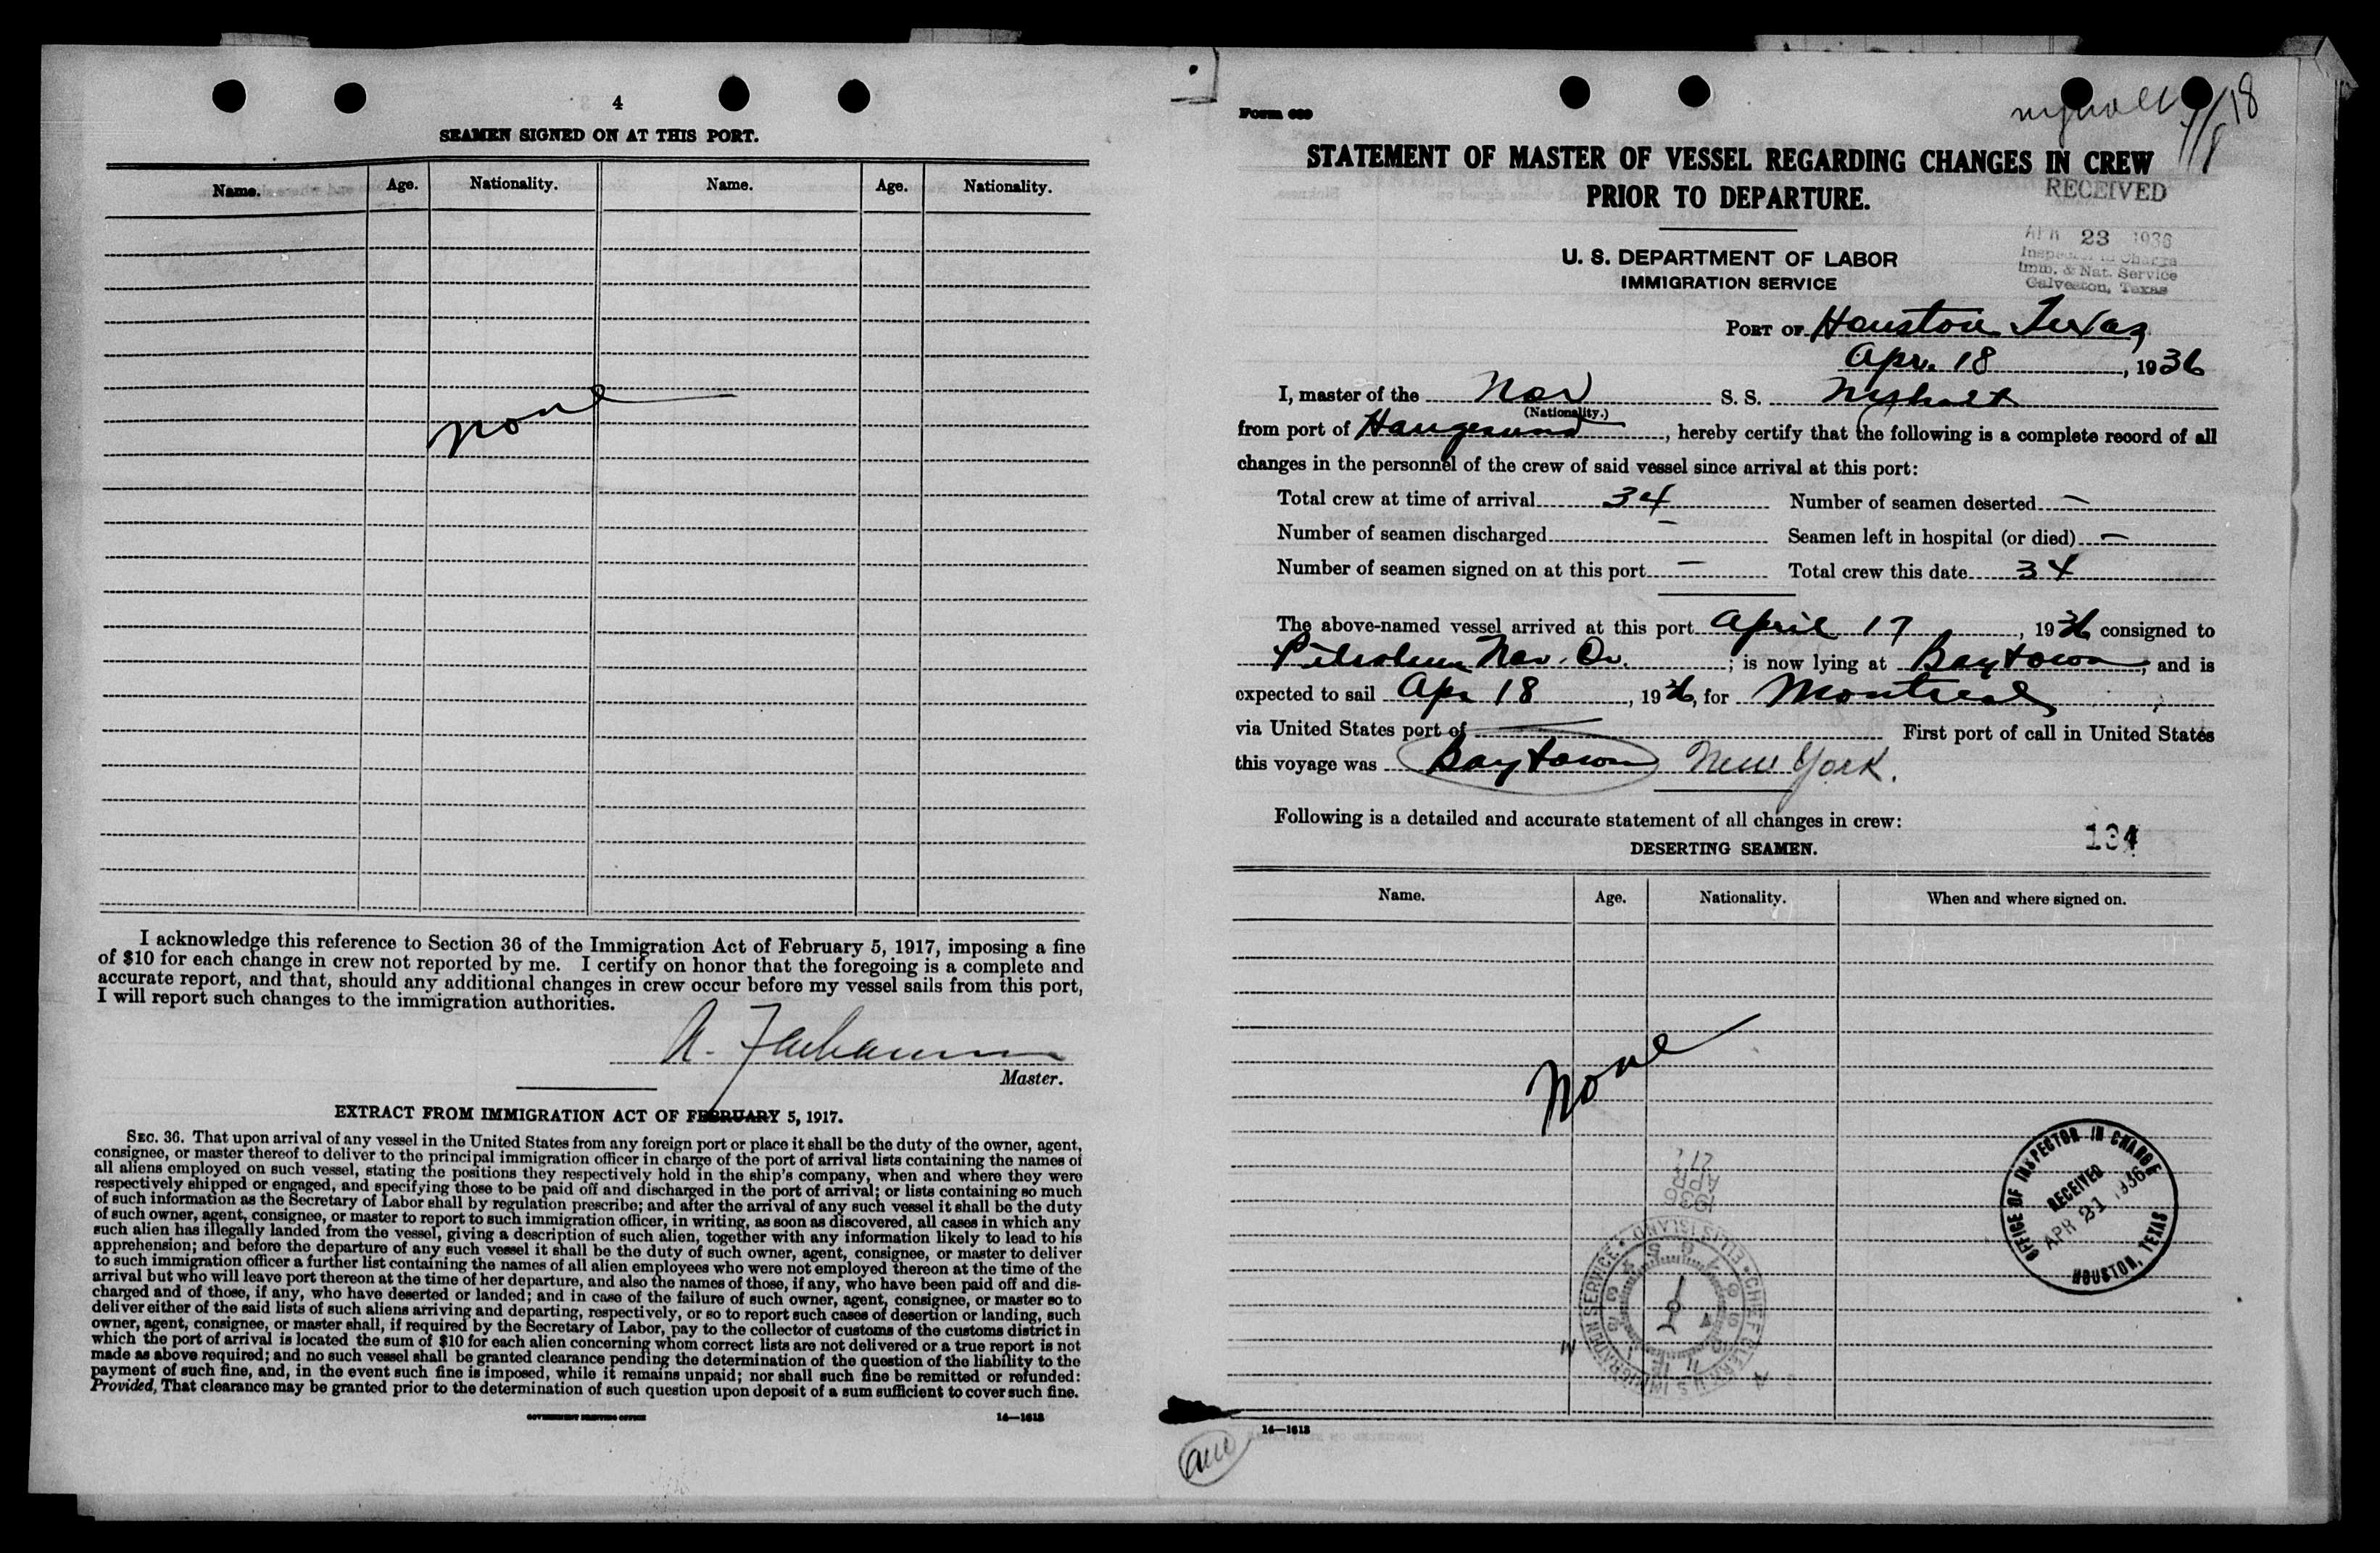 4
SEAMEN SIGNED ON AT THIS PORT.
Name. Age. Nationality. Name. Age. Nationality.
none
I acknowledge this reference to Section 36 of the Immigration Act of February 5, 1917, imposing a fine
of $10 for each change in crew not reported by me. I certify on honor that the foregoing is a complete and
accurate report, and that, should any additional changes in crew occur before my vessel sails from this port,
I will report such changes to the immigration authorities.
Master.
EXTRACT FROM IMMIGRATION ACT OF FEBRUARY 5, 1917.
SEC. 36. That upon arrival of any vessel in the United States from any foreign port or place it shall be the duty of the owner, agent,
consignee, or master thereof to deliver to the principal immigration officer in charge of the port of arrival lists containing the names of
all aliens employed on such vessel, stating the positions they respectively hold in the ship's company, when and where they were
respectively shipped or engaged, and specifying those to be paid off and discharged in the port of arrival; or lists containing so much
of such information as the Secretary of Labor shall by regulation prescribe; and after the arrival of any such vessel it shall be the duty
of such owner, agent, consignee, or master to report to such immigration officer, in writing, as soon as discovered, all cases in which any
such alien has illegally landed from the vessel, giving a description of such alien, together with any information likely to lead to his
apprehension; and before the departure of any such vessel it shall be the duty of such owner, agent, consignee, or master to deliver
to such immigration officer a further list containing the names of all alien employees who were not employed thereon at the time of the
arrival but who will leave port thereon at the time of her departure, and also the names of those, if any, who have been paid off and dis-
charged and of those, if any, who have deserted or landed; and in case of the failure of such owner, agent, consignee, or master so to
deliver either of the said lists of such aliens arriving and departing, respectively, or so to report such cases of desertion or landing, such
owner, agent, consignee, or master shall, if required by the Secretary of Labor, pay to the collector of customs of the customs district in
which the port of arrival is located the sum of $10 for each alien concerning whom correct lists are not delivered or a true report is not
made as above required; and no such vessel shall be granted clearance pending the determination of the question of the liability to the
payment of such fine, and, in the event such fine is imposed, while it remains unpaid; nor shall such fine be remitted or refunded:
Provided, That clearance may be granted prior to the determination of such question upon deposit of a sum sufficient to cover such fine.
GOVERNMENT PRINTING OFFICE 14—1613
Form 689
STATEMENT OF MASTER OF VESSEL REGARDING CHANGES IN CREW
PRIOR TO DEPARTURE.
RECEIVED
APR 23 1936
Inspector in Charge
Imm. & Nat. Service
Galveston, Texas
U. S. DEPARTMENT OF LABOR
IMMIGRATION SERVICE
PORT OF Houston Texas
Apr. 18, 1936
I, master of the Nor S. S. Nyholt
(Nationality.)
from port of Haugesund, hereby certify that the following is a complete record of all
changes in the personnel of the crew of said vessel since arrival at this port:
Total crew at time of arrival 34 Number of seamen deserted —
Number of seamen discharged — Seamen left in hospital (or died) —
Number of seamen signed on at this port — Total crew this date 34
The above-named vessel arrived at this port April 17, 1936 consigned to
Petroleum Nav. Co.; is now lying at Baytown, and is
expected to sail Apr 18, 1936, for Montreal
via United States port of — First port of call in United States
this voyage was Baytown New York.
Following is a detailed and accurate statement of all changes in crew:
134
DESERTING SEAMEN.
Name. Age. Nationality. When and where signed on.
None
OFFICE OF INSPECTOR IN CHARGE
RECEIVED
APR 21 1936
HOUSTON, TEXAS
1936
APR
CHIEF CLERK U S IMMIGRATION SERVICE ELLIS ISLAND
14—1613